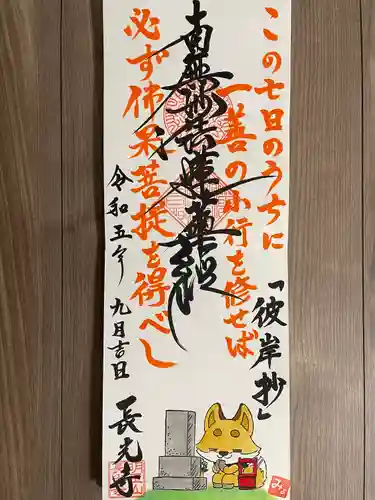 この七日のうちに
一善の小行を修せば
「彼岸抄」
南無妙法蓮華経
必ず佛果菩提を得べし
令和五年
九月吉日
長光寺